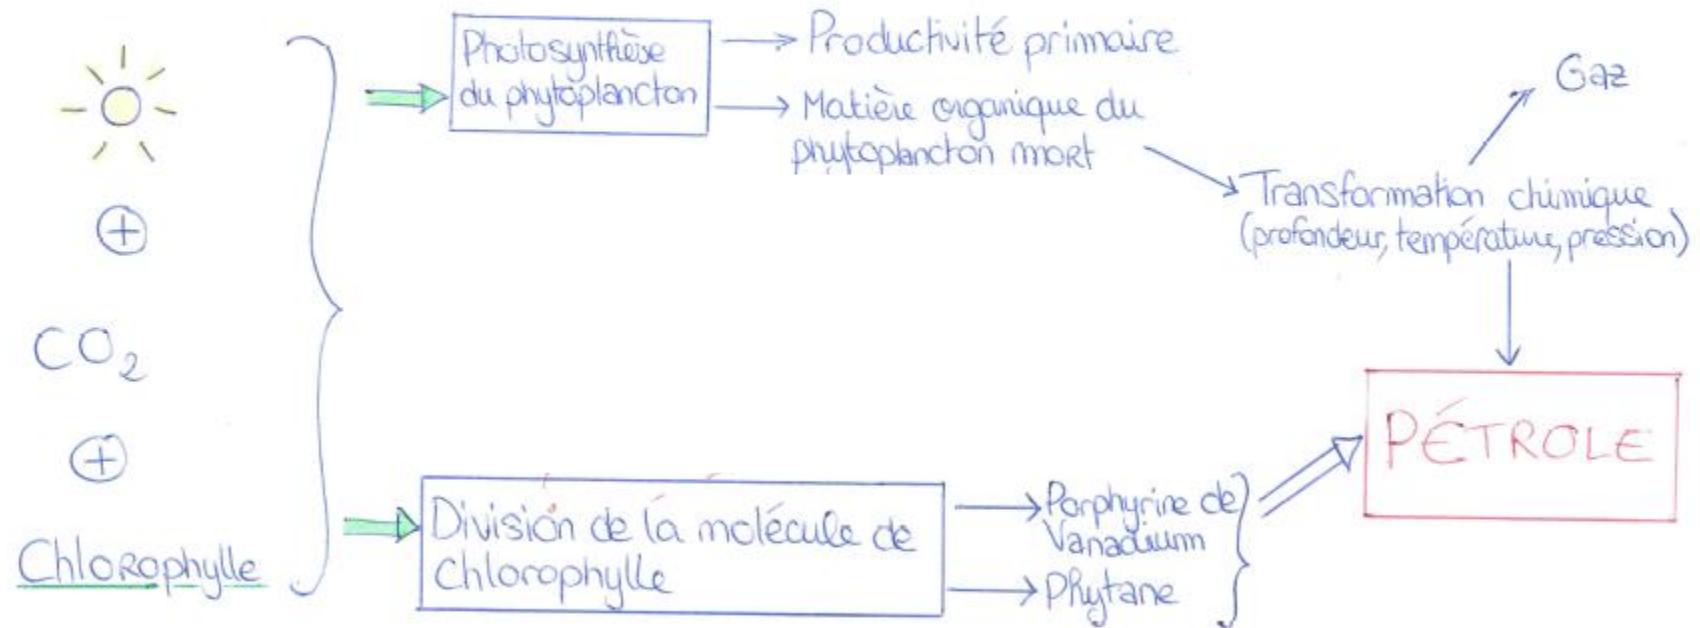 Photosynthèse
du phytoplancton
Productivité primaire
Matière organique du
phytoplancton mort
Gaz
Transformation chimique
(profondeur, température, pression)
+
CO2
+
Chlorophylle
Division de la molécule de
Chlorophylle
Porphyrine de
Vanadium
Phytane
PÉTROLE